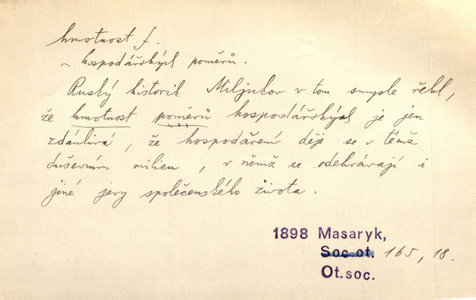 hmotnost f.
~ hospodářských poměrů.
Ruský historik Miljukov v tom smysle řekl,
že hmotnost poměrů hospodářských je jen
zdánlivá, že hospodaření děje se v témž
duševním milieu, v němž se odehrávají i
jiné jevy společenského života.
1898 Masaryk,
Soc. ot. 165, 18.
Ot. soc.